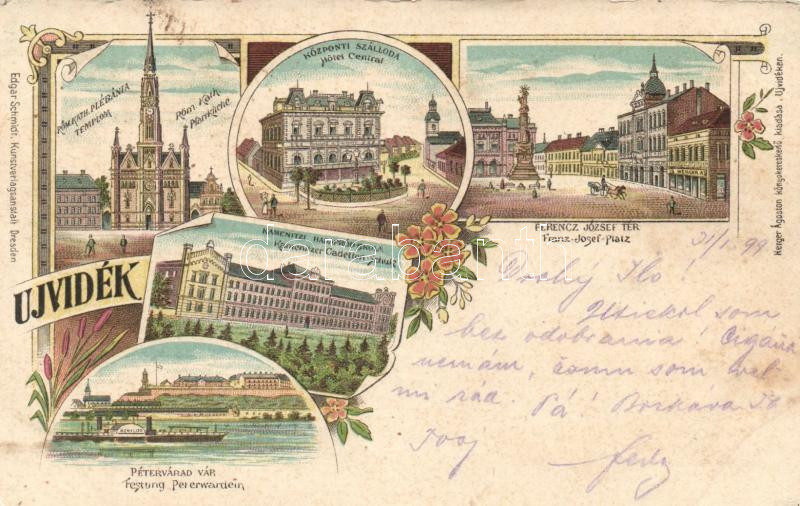 Edgar Schmidt, Kunstverlagsanstalt Dresden
RÓM. KATH. PLÉBÁNIA
TEMPLOM
Röm. Kath.
Pfarrkirche
KÖZPONTI SZÁLLODA
Hôtel Central
FERENCZ JÓZSEF TÉR
Franz-Josef-Platz
Herger Ágoston könyvkereskedő kiadása, Ujvidéken.
KAMENITZI HADAPRÓDISKOLA
Kamenitzer Cadettenschule
UJVIDÉK
PÉTERVÁRAD VÁR
Festung Peterwardein
darabanth
31/1 99
Drahý Ilo!
Utiekol som
bez odobrania!
nemám, som
mi rád. Pá!